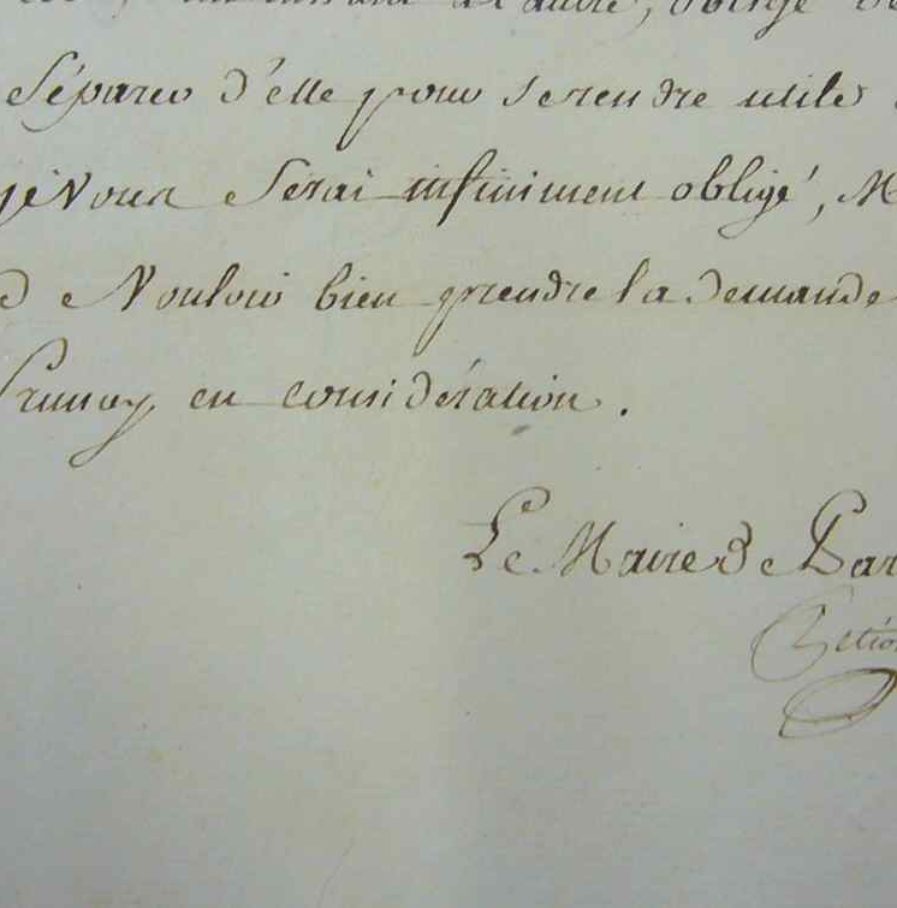 à l'autre, obligé de
Séparer d'elle pour se rendre utile
je Vous Serai infiniment obligé, M
de Vouloir bien prendre la demande
Prunay en considération.
Le Maire de Par
Pétion